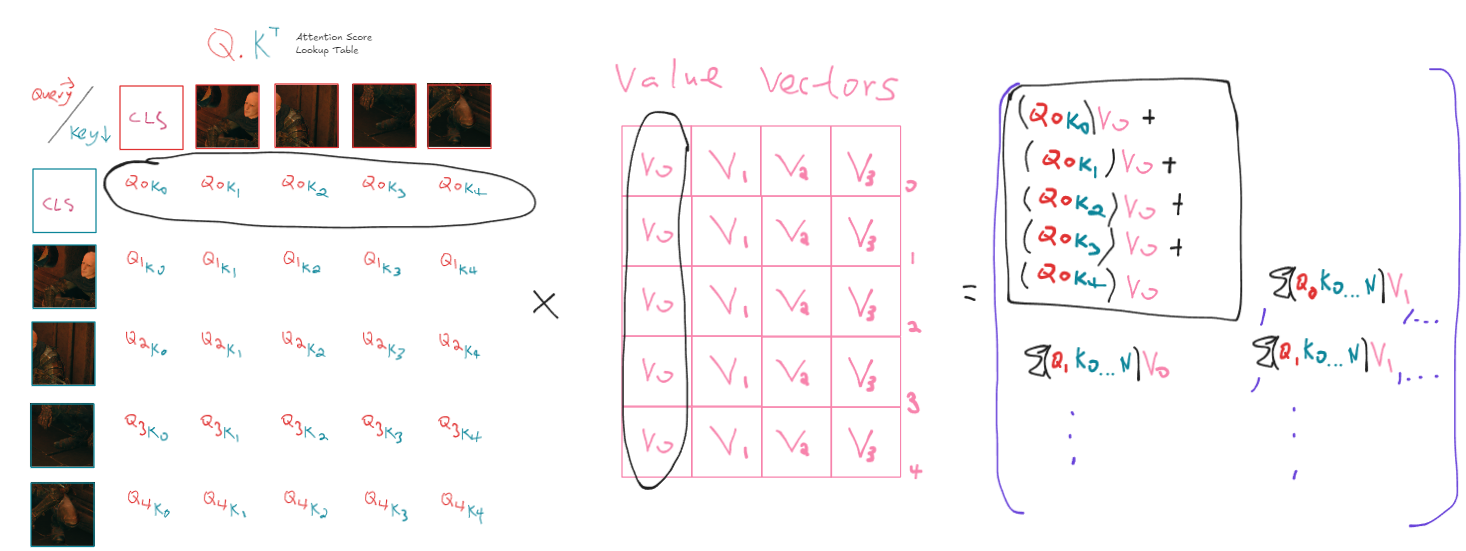 Q.Kᵀ
Attention Score
Lookup Table
Query→ / Key↓
CLS
CLS
Q0K0 Q0K1 Q0K2 Q0K3 Q0K4
Q1K0 Q1K1 Q1K2 Q1K3 Q1K4
Q2K0 Q2K1 Q2K2 Q2K3 Q2K4
Q3K0 Q3K1 Q3K2 Q3K3 Q3K4
Q4K0 Q4K1 Q4K2 Q4K3 Q4K4
×
Value Vectors
V0 V1 V2 V3 0
V0 V1 V2 V3 1
V0 V1 V2 V3 2
V0 V1 V2 V3 3
V0 V1 V2 V3 4
=
(Q0K0)V0 +
(Q0K1)V0 +
(Q0K2)V0 +
(Q0K3)V0 +
(Q0K4)V0
, Σ(Q0K0...N)V1 , ...
Σ(Q1K0...N)V0 , Σ(Q1K0...N)V1 , ...